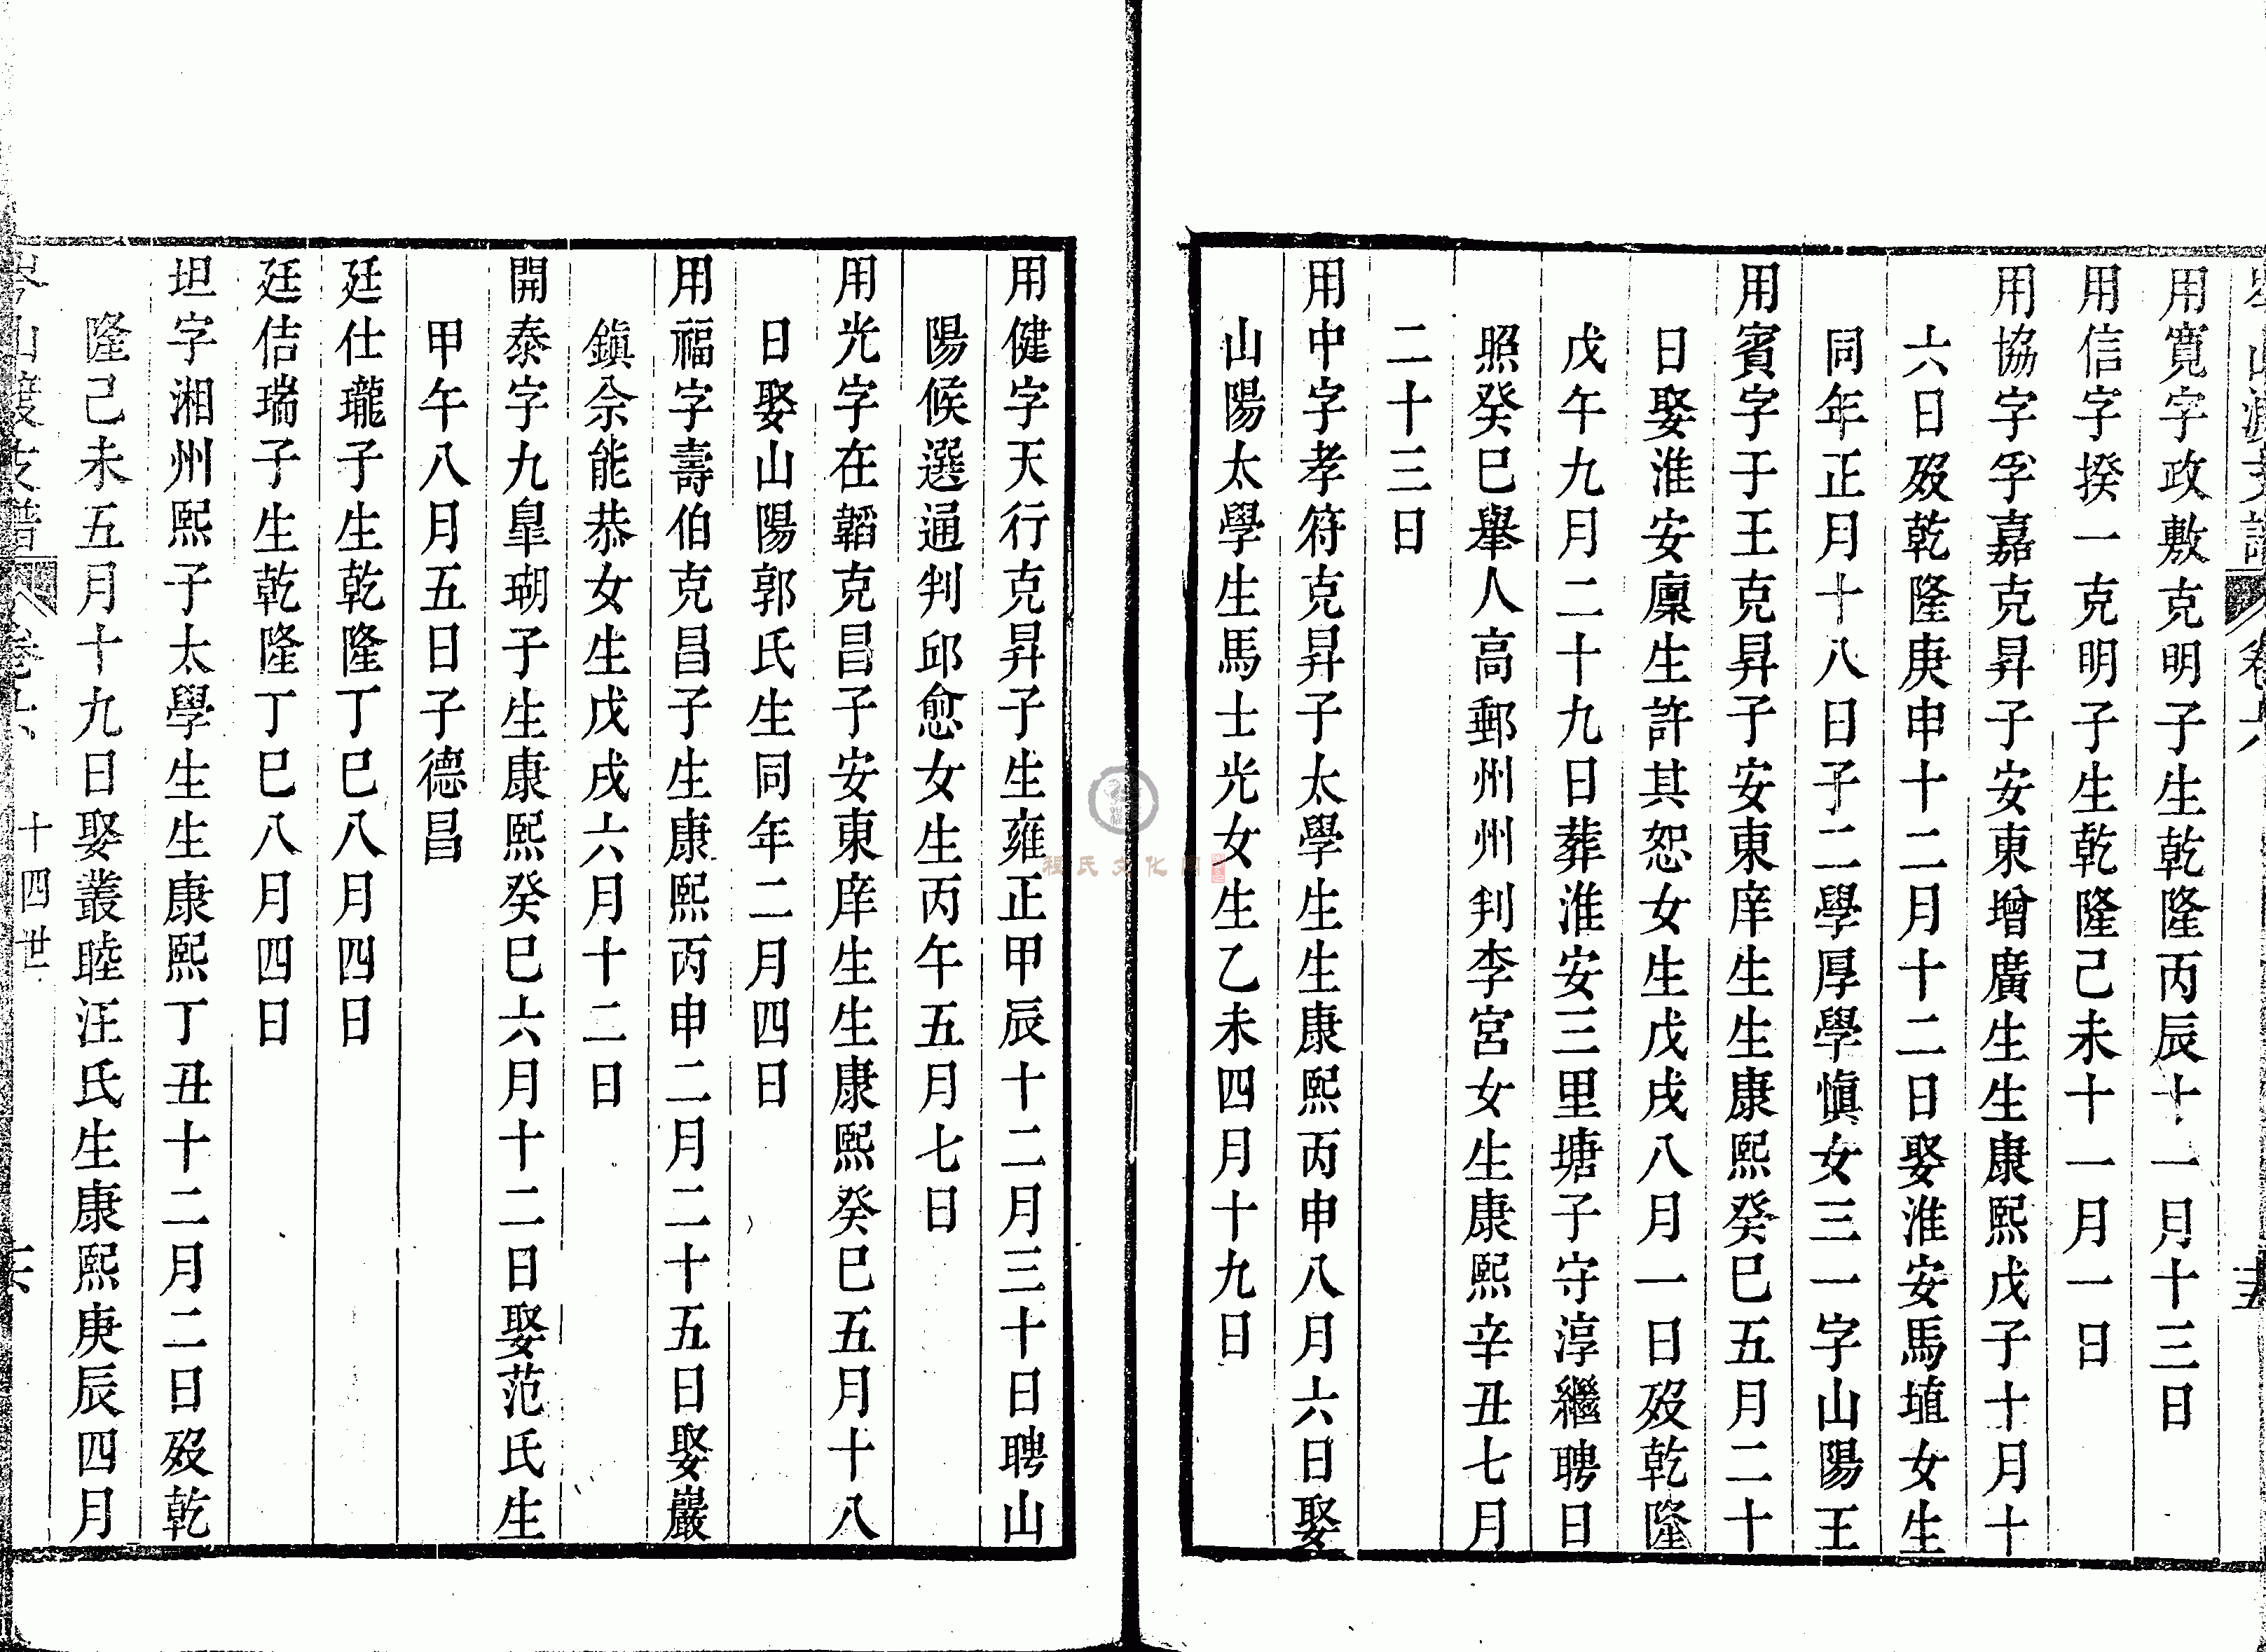 岑山渡支譜 卷六 十五
用寬字政敷克明子生乾隆丙辰十一月十三日
用信字揆一克明子生乾隆己未十一月一日
用協字孚嘉克昇子安東增廣生生康熙戊子十月十
六日歿乾隆庚申十二月十二日娶淮安馬埴女生
同年正月十八日子二學厚學愼女三一字山陽王
用賓字于王克昇子安東庠生生康熙癸巳五月二十
日娶淮安廩生許其恕女生戊戌八月一日歿乾隆
戊午九月二十九日葬淮安三里塘子守淳繼聘日
照癸巳舉人高郵州州判李宮女生康熙辛丑七月
二十三日
用中字孝符克昇子太學生生康熙丙申八月六日娶
山陽太學生馬士光女生乙未四月十九日
用健字天行克昇子生雍正甲辰十二月三十日聘山
陽候選通判邱愈女生丙午五月七日
用光字在韜克昌子安東庠生生康熙癸巳五月十八
日娶山陽郭氏生同年二月四日
用福字壽伯克昌子生康熙丙申二月二十五日娶巖
鎭佘能恭女生戊戌六月十二日
開泰字九臯瑚子生康熙癸巳六月十二日娶范氏生
甲午八月五日子德昌
廷仕瓏子生乾隆丁巳八月四日
廷佶瑞子生乾隆丁巳八月四日
坦字湘州熙子太學生生康熙丁丑十二月二日歿乾
隆己未五月十九日娶叢睦汪氏生康熙庚辰四月
岑山渡支譜 卷六 十四世 十六
程氏文化网